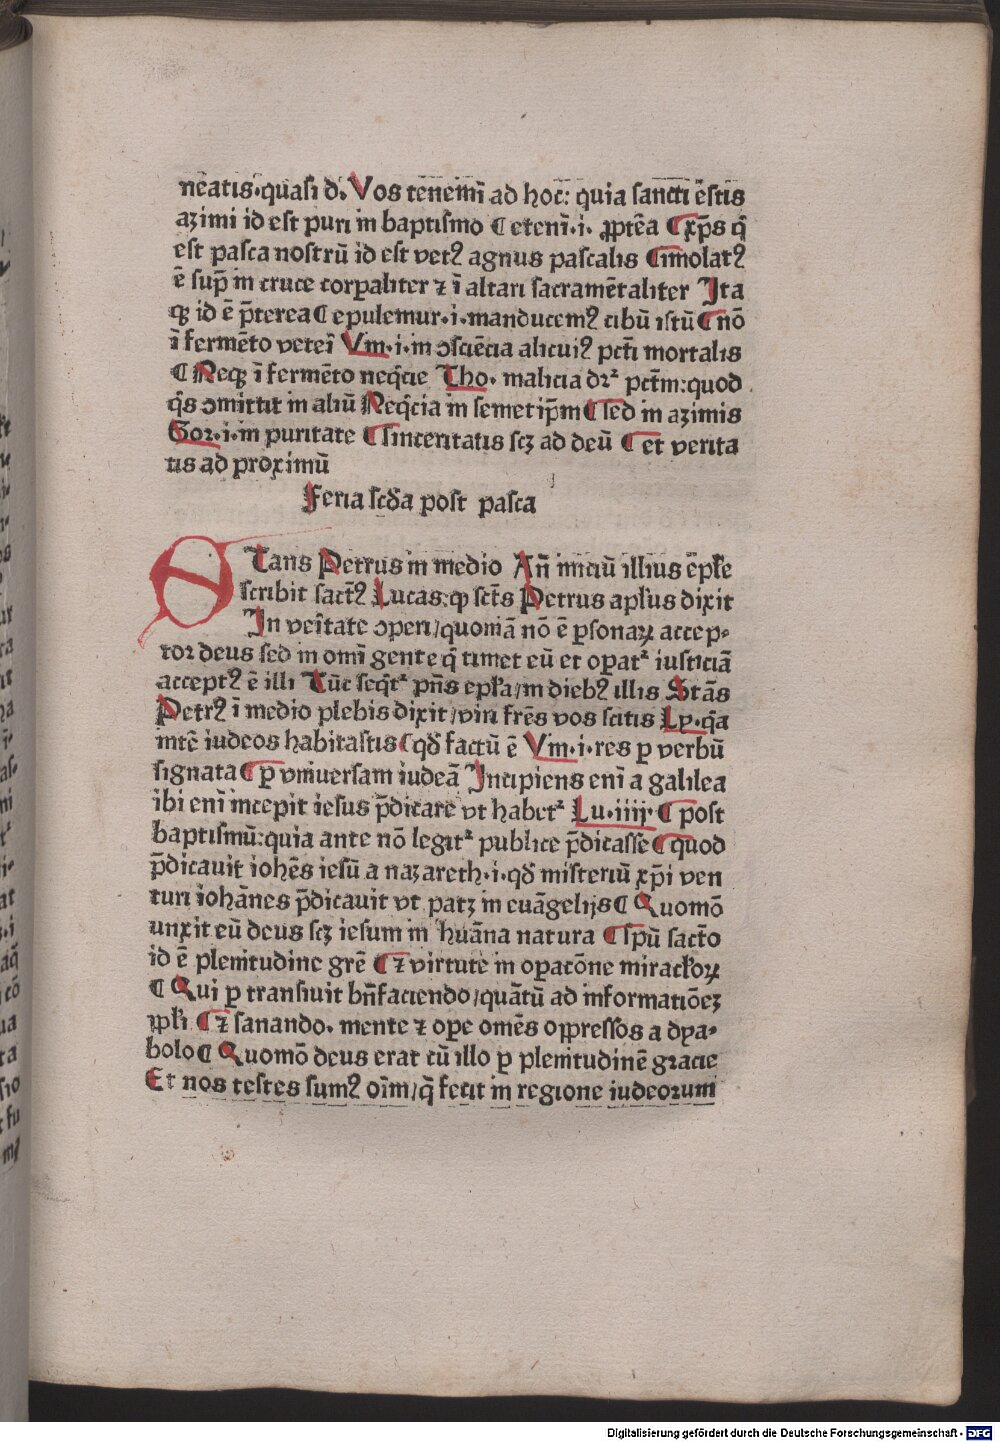 nēatis·quasi d. Vos tenemī ad hoc: quia sancti ēstis
azimi id est puri in baptismo ¶ etenī·i· ꝓptēa ¶ xp̄s q̄
est pasca nostrū id est vetꝰ agnus pascalis ¶ īmolatꝰ
ē sup̄ in cruce corꝑaliter ⁊ ī altari sacramētaliter Ita
qꝫ id ē p̄terea ¶ epulemur·i·manducemꝰ cibū istū ¶ nō
ī fermēto veteī Vin·i·in ↄsciēcia alicuiꝰ pcti mortalis
¶ Neqꝫ ī fermēto neq̄cie Tho· malicia dr̄ pctm̄:quod
q̄s ↄmittit in aliū Neq̄cia in semetip̄m ¶ sed in azimis
Gor·i·in puritate ¶ sinceritatis scꝫ ad deū ¶ et verita
tis ad proximū
Feria scd̄a post pasca
STans Petrus in medio An̄ iniciū illius ep̄le
scribit sact̄ꝰ Lucas:ꝙ sct̄s Petrus apl̄us dixit
In veītate ↄperi/quoniā nō ē ꝑsonaꝝ accep-
tor deus sed in omī gente q̄ timet eū et oꝑatᷣ iusticiā
acceptꝰ ē illi Tūc seq̄tᷣ pn̄s epl̄a/in diebꝰ illis Stās
Petrꝰ ī medio plebis dixit/viri fr̄es vos scitis Ly·q̄a
intē iudeos habitastis ¶ qd̄ factū ē Vin·i·res ꝑ verbū
signata ¶ ꝑ vniuersam iudeā Incipiens enī a galilea
ibi enī incepit iesus p̄dicare vt habetᷣ Lu·iiij· ¶ post
baptismū:quia ante nō legitᷣ publice p̄dicasse ¶ quod
p̄dicauit iohēs iesū a nazareth·i·qd̄ misteriū xp̄i ven
turi iohānes p̄dicauit vt patꝫ in euāgelijs ¶ Quomō
unxit eū deus scꝫ iesum in huāna natura ¶ spū sact̄o
id ē plenitudine gr̄e ¶ ⁊ virtute in oꝑacōne miracl̄oꝝ
¶ Qui ꝑ transiuit bn̄faciendo/quātū ad informatiōeꝫ
ppl̄i ¶ ⁊ sanando· mente ⁊ oꝑe omēs oppressos a dya-
bolo ¶ Quomō deus erat cū illo ꝑ plenitudinē gracie
Et nos testes sumꝰ oīm/q̄ fecit in regione iudeorum
Digitalisierung gefördert durch die Deutsche Forschungsgemeinschaft - DFG